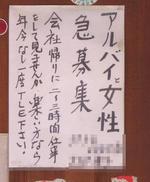 アルバイト女性
急募集
会社帰りに二〜三時間仕事
をして見ませんか楽い方なら
年令なし一度TLE下さい!